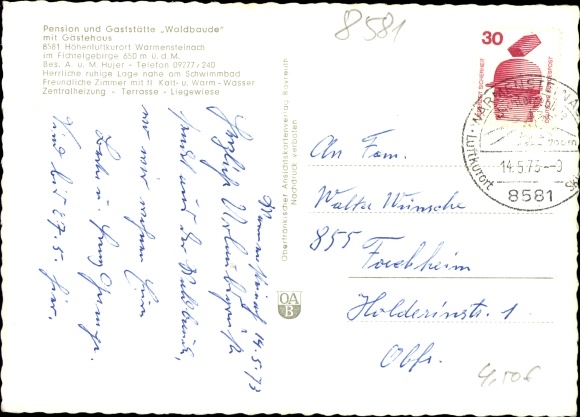 Pension und Gaststätte „Waldbaude"
mit Gästehaus
8581 Höhenluftkurort Warmensteinach
im Fichtelgebirge 650 m ü. d. M.
Bes. A. u. M. Hujer - Telefon 09277 / 240
Herrliche ruhige Lage nahe am Schwimmbad
Freundliche Zimmer mit fl. Kalt- u. Warm-Wasser
Zentralheizung - Terrasse - Liegewiese
8581
30
JEDERZEIT SICHERHEIT
DEUTSCHE BUNDESPOST
WARMENSTEINACH
Luftkurort
14.5.73
8581
Oberfränkischer Ansichtskartenverlag Bayreuth
Nachdruck verboten
OA
B
An Fam.
Walter Wünsche
855 Forchheim
Holderinstr. 1
Obfr.
4,50€
14.5.73
Herzliche Urlaubsgrüße
sendet aus der Waldbaude,
wo wir
u.
Sind bis 27.5. hier.